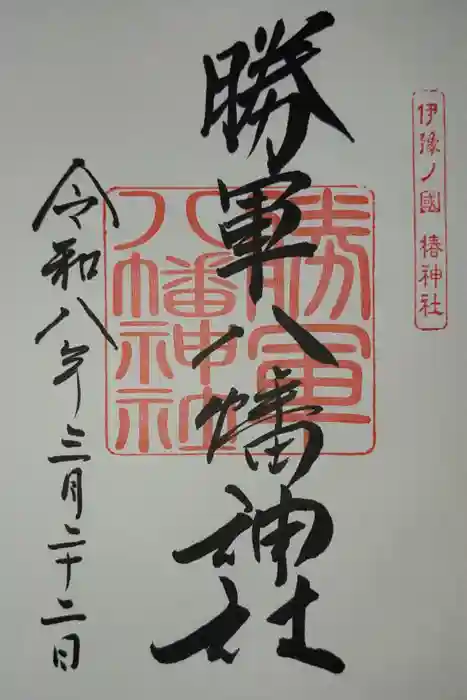 伊豫ノ國 椿神社
勝軍八幡神社
勝軍
八幡神社
令和八年三月二十二日